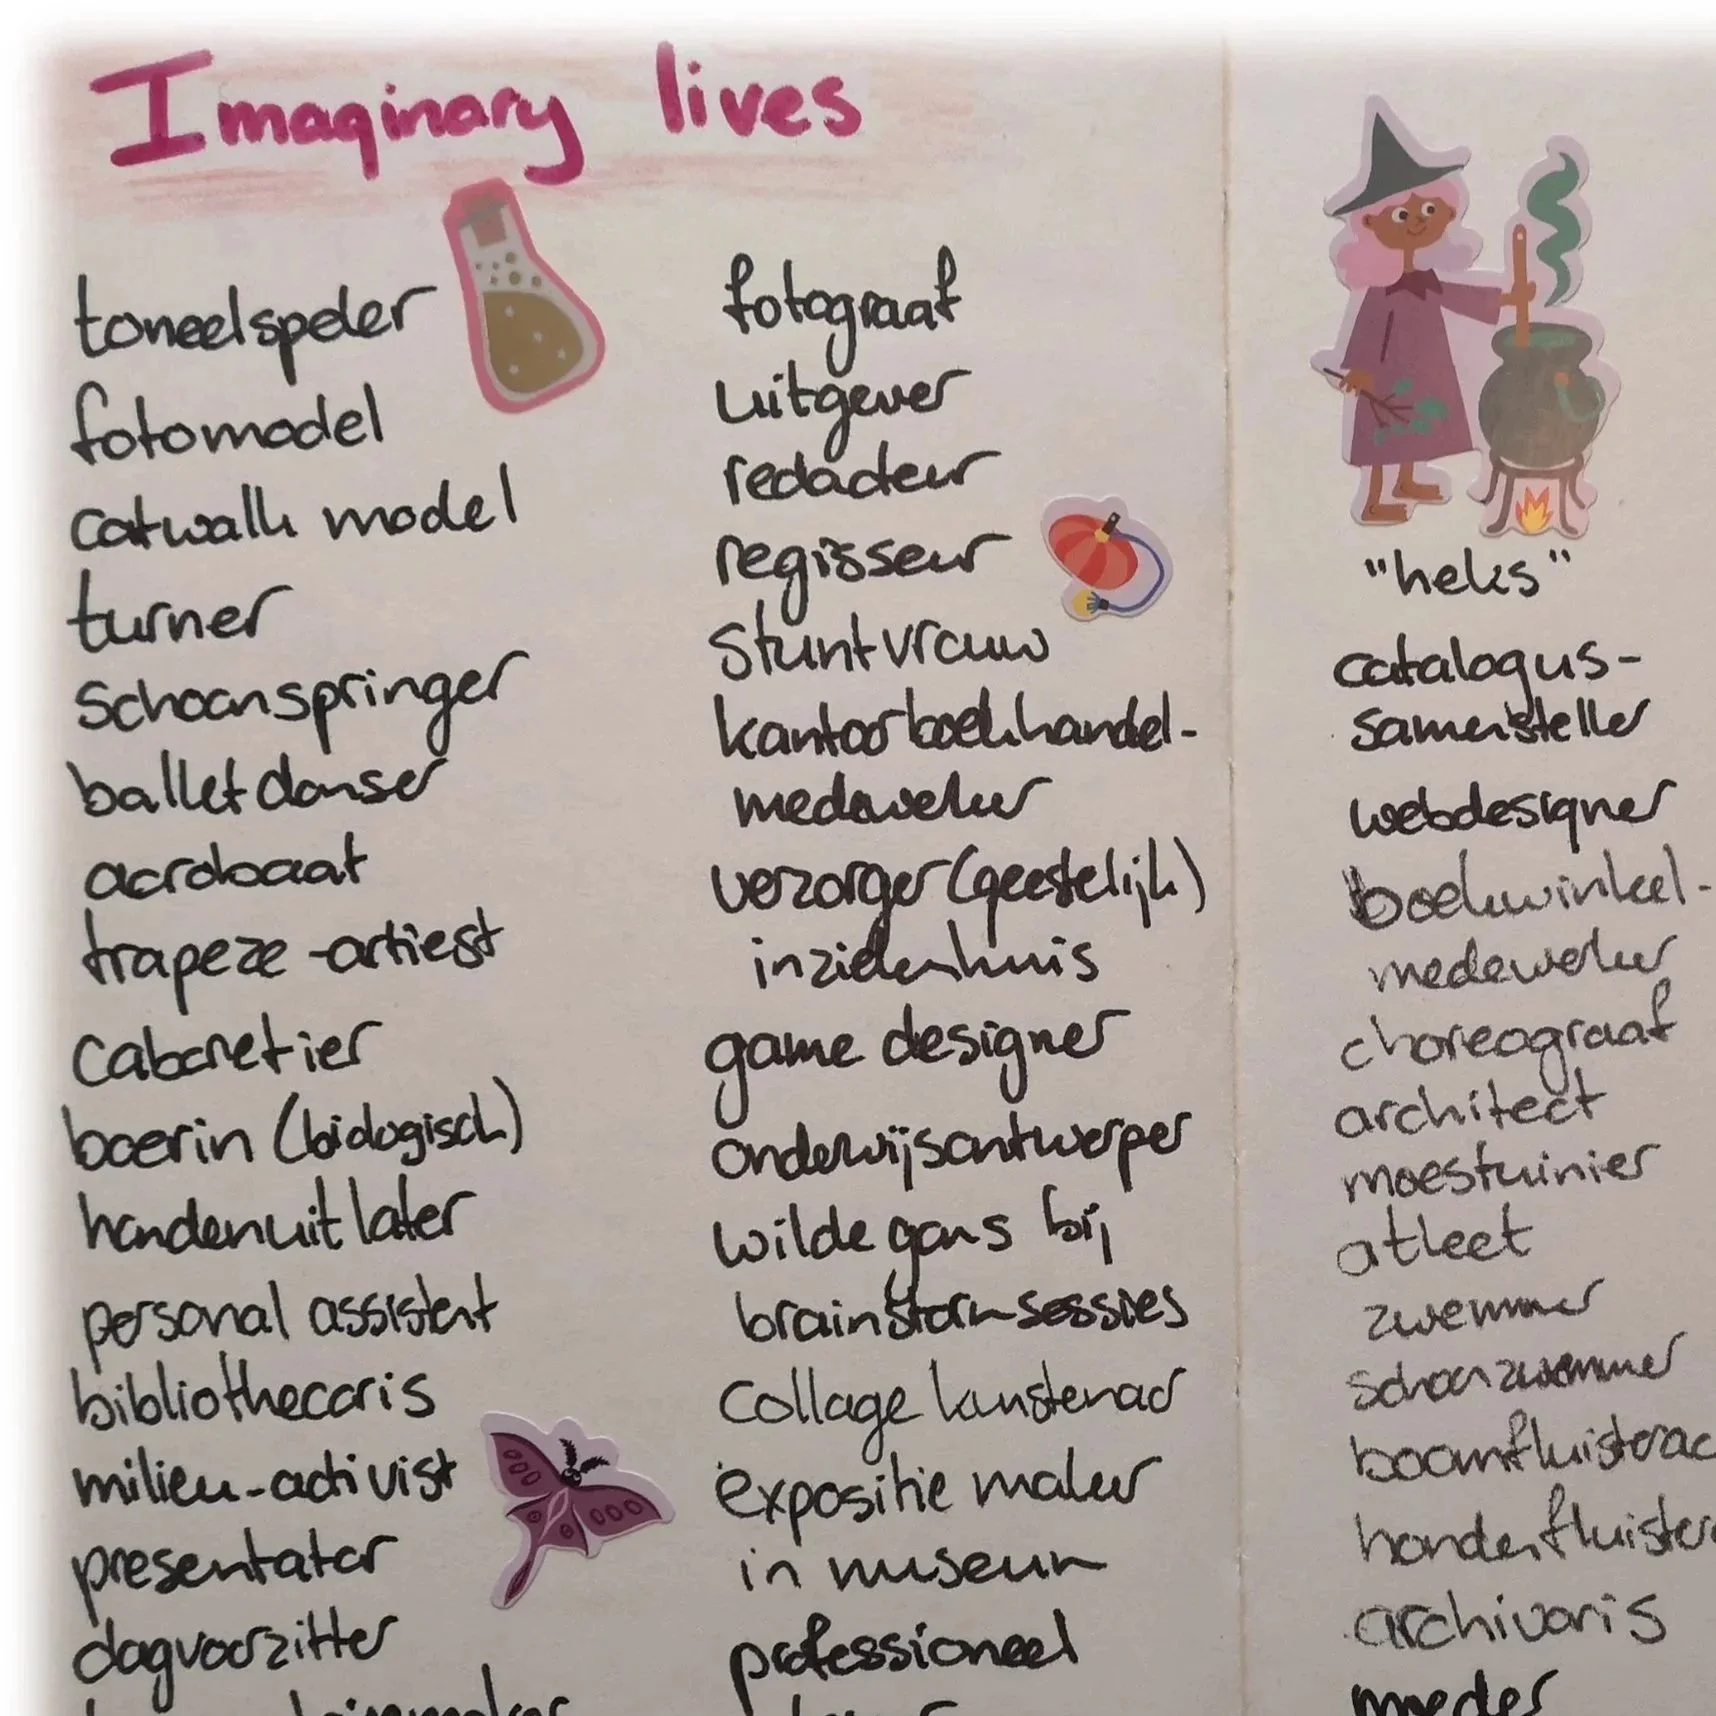 Imaginary lives
toneelspeler
fotomodel
catwalk model
turner
schoonspringer
balletdanser
acrobaat
trapeze-artiest
Cabaretier
boerin (biologisch)
hondenuitlater
personal assistent
bibliothecaris
milieu-activist
presentator
dagvoorzitter
fotograaf
uitgever
redacteur
regisseur
stuntvrouw
kantoorboekhandel-
medewerker
verzorger (geestelijk)
in ziekenhuis
game designer
onderwijsontwerper
wilde gans bij
brainstormsessies
collage kunstenaar
expositie maker
in museum
professioneel
"heks"
catalogus-
samensteller
webdesigner
boekwinkel-
medewerker
choreograaf
architect
moestuinier
atleet
zwemmer
schoonzwemmer
boomfluisteraa
hondenfluister
archivaris
moeder